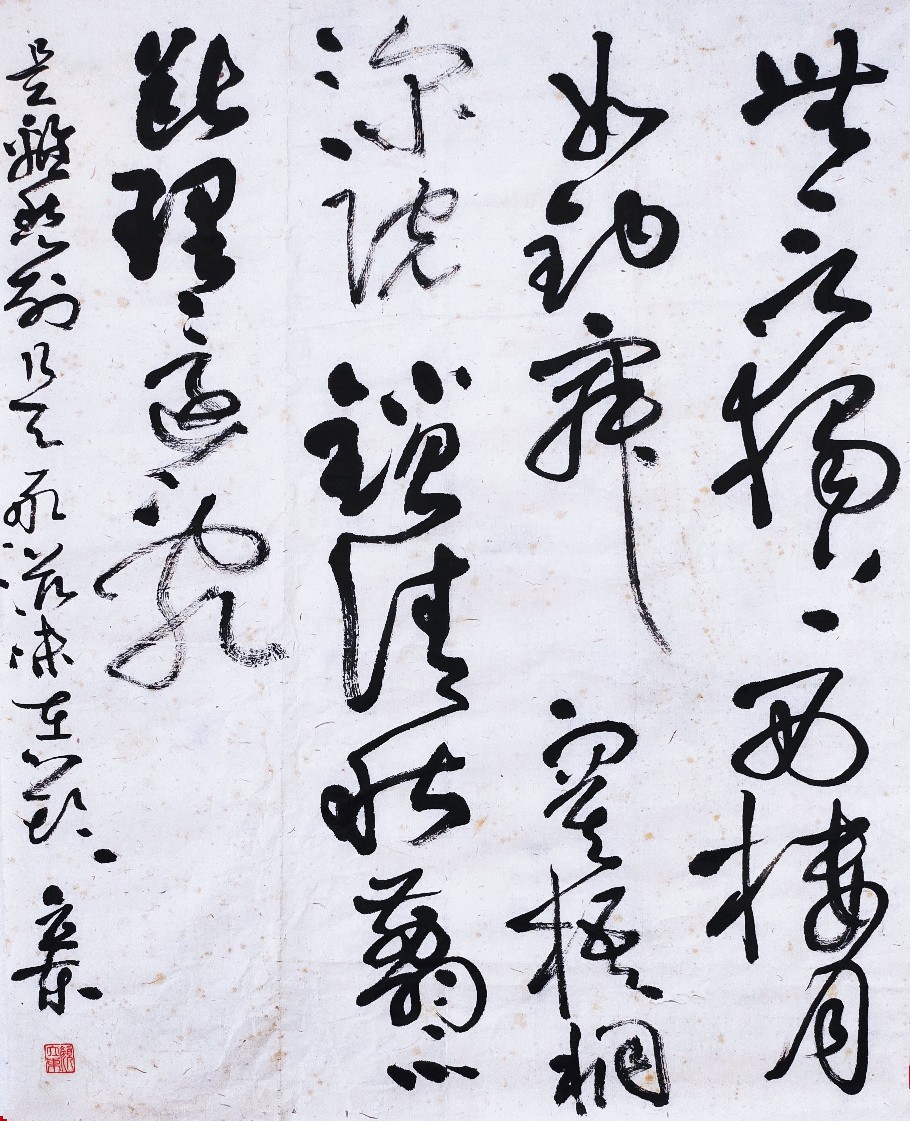 無言獨上西樓月
如鉤寂寞梧桐
深院鎖清秋剪不
斷理還亂
是離愁別是一般滋味在心頭